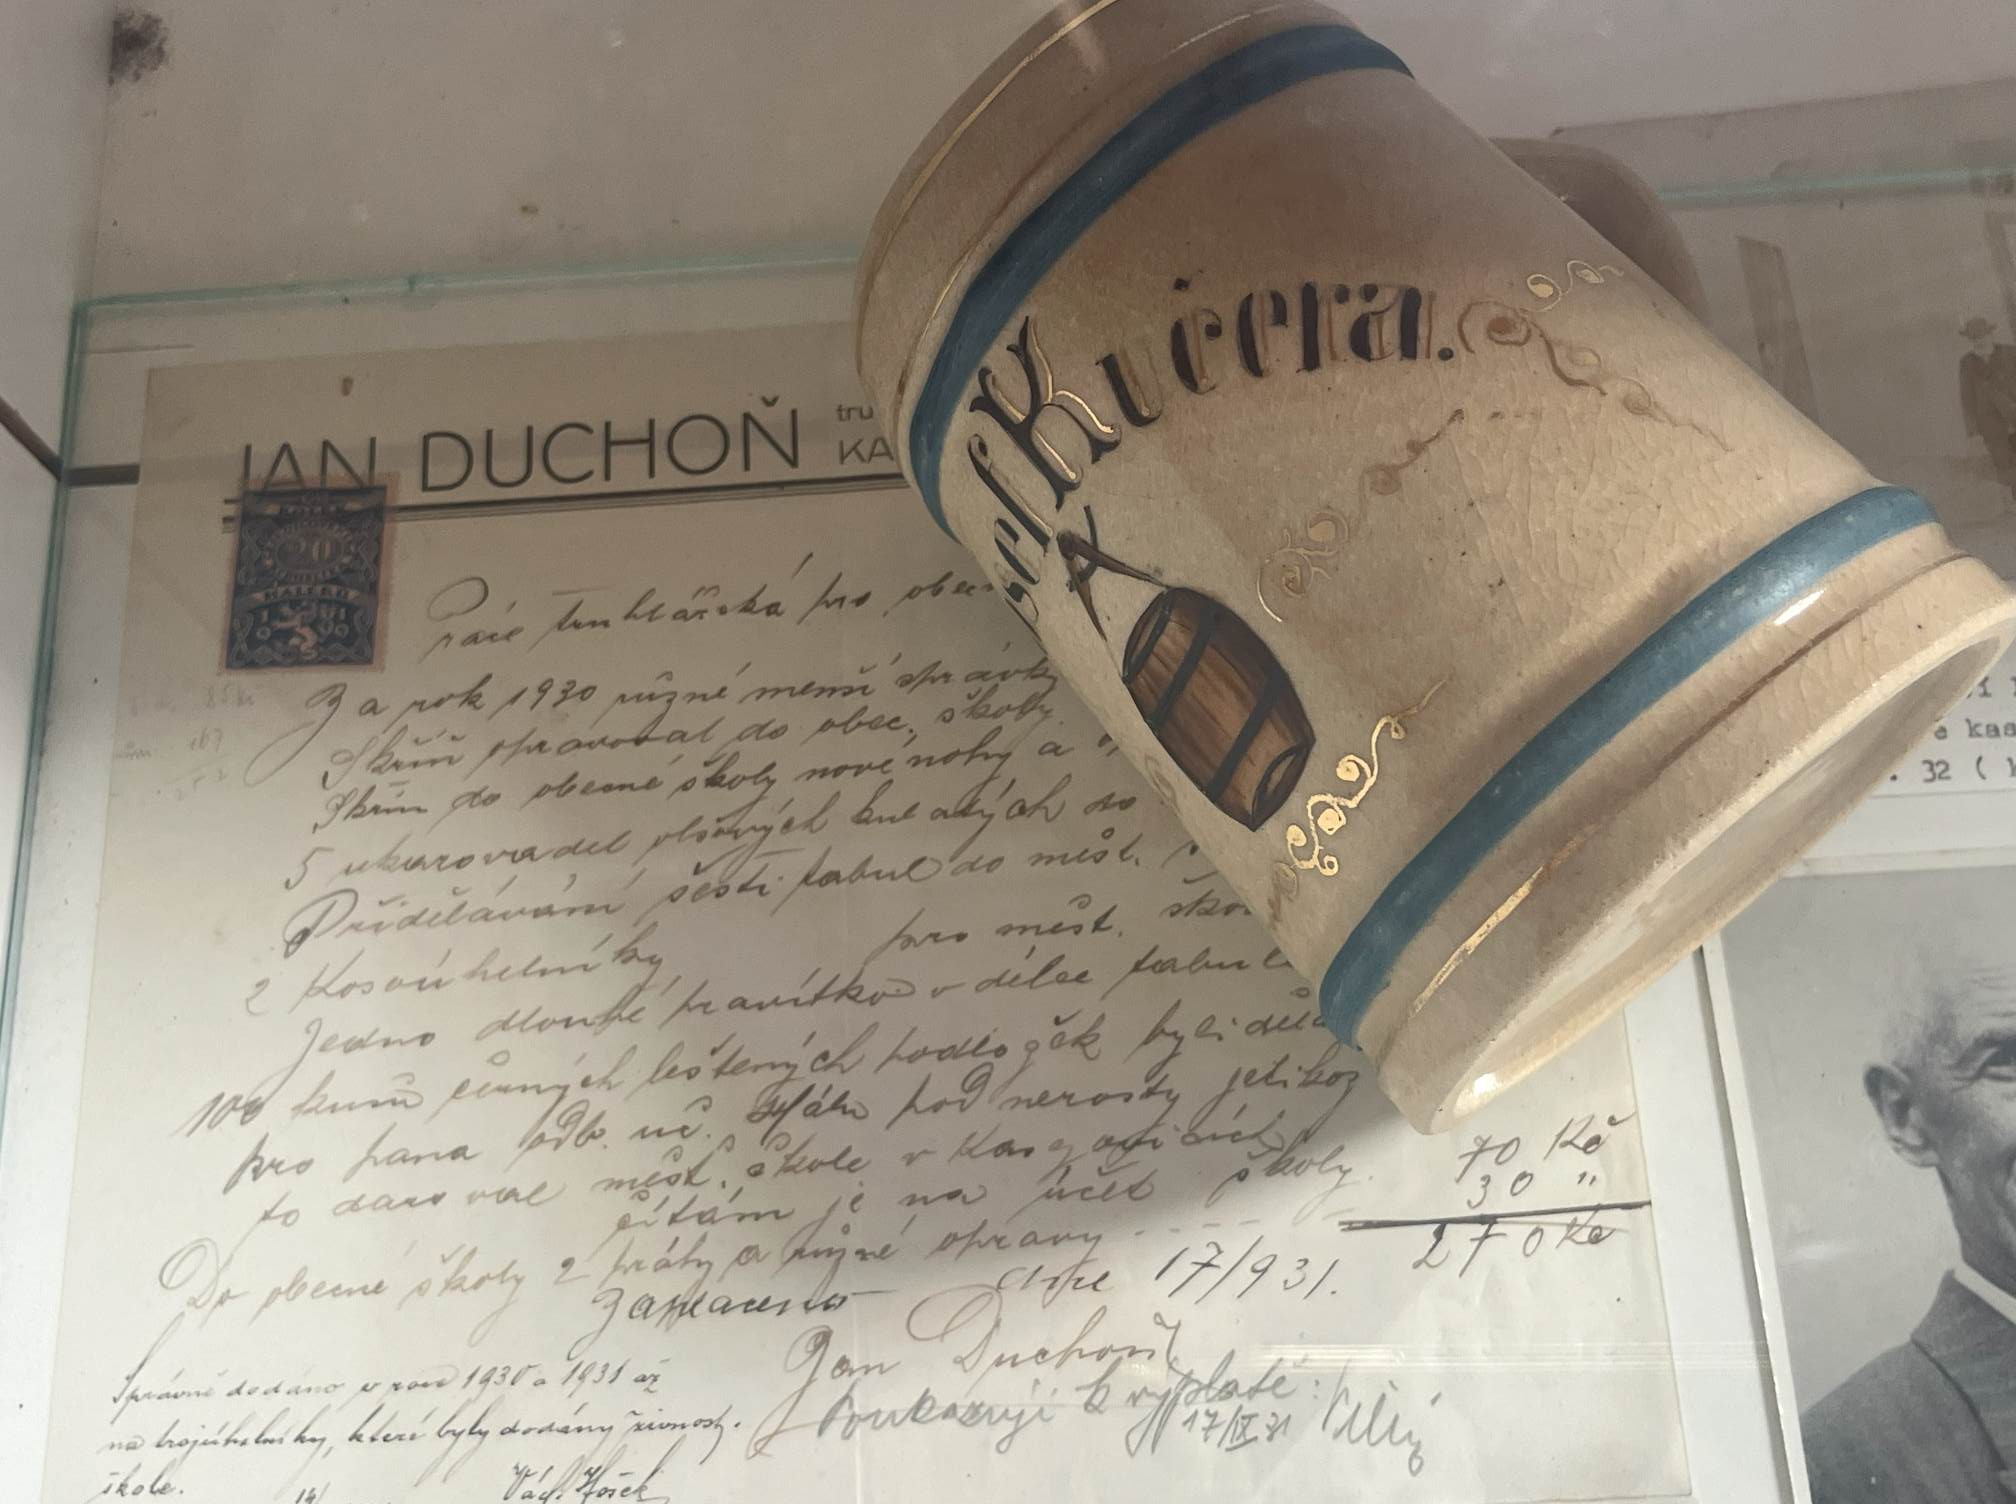 JAN DUCHOŇ
tru
KA
20
HALÉŘŮ
Práce truhlářská pro obec
Za rok 1930 různé menší správky
Skříň opravoval do obec. školy.
Skříň do obecné školy nové nohy a
5 ukazovadel olšových kulatých do
Přidělávání šesti tabul do měšt.
2 Kosoúhelníky pro měšt. ško
Jedno dlouhé pravítko v délce tabul
100 kusů černých leštených podložek byli děl
pro pana odb. uč. pod nerosty jelikoz
to daroval měšt. škole v Kasejovicích
čítám je na účet školy. 70 Kč
Do obecné školy 2 práhy a různé opravy 30 "
270 Kč
Zaplaceno dne 17/9 31.
Jan Duchoň
Poukazuji k výplatě:
17/IX 31
Správně dodáno v roce 1930 a 1931 až
na trojúhelníky, které byly dodány živnost.
škole.
Václ. Hošek
sef Kučera.
e kas
. 32 (